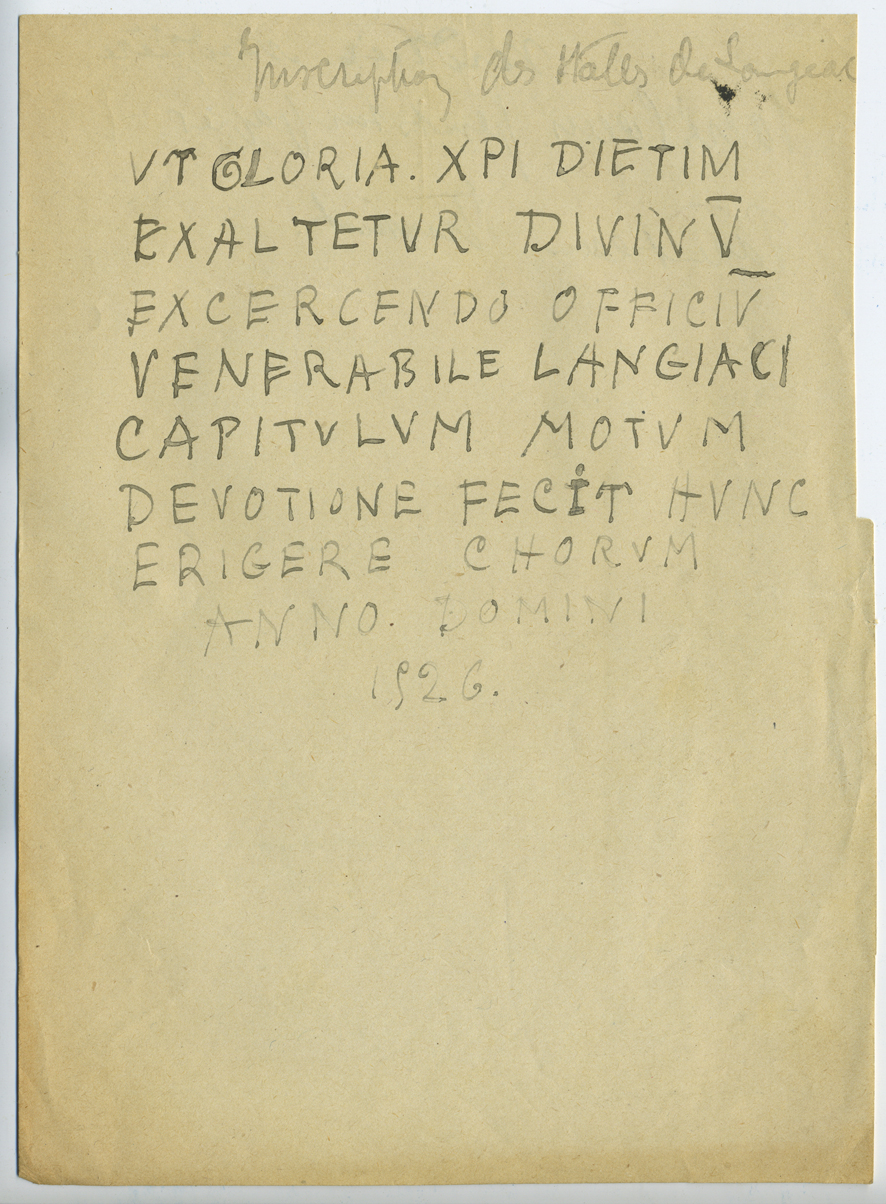 Inscription des Stalles de Langeac
VT GLORIA. XPI DIETIM
EXALTETVR DIVINV̅
EXCERCENDO OFFICIV̅
VENERABILE LANGIACI
CAPITVLVM MOTVM
DEVOTIONE FECIT HVNC
ERIGERE CHORVM
ANNO. DOMINI
1526.